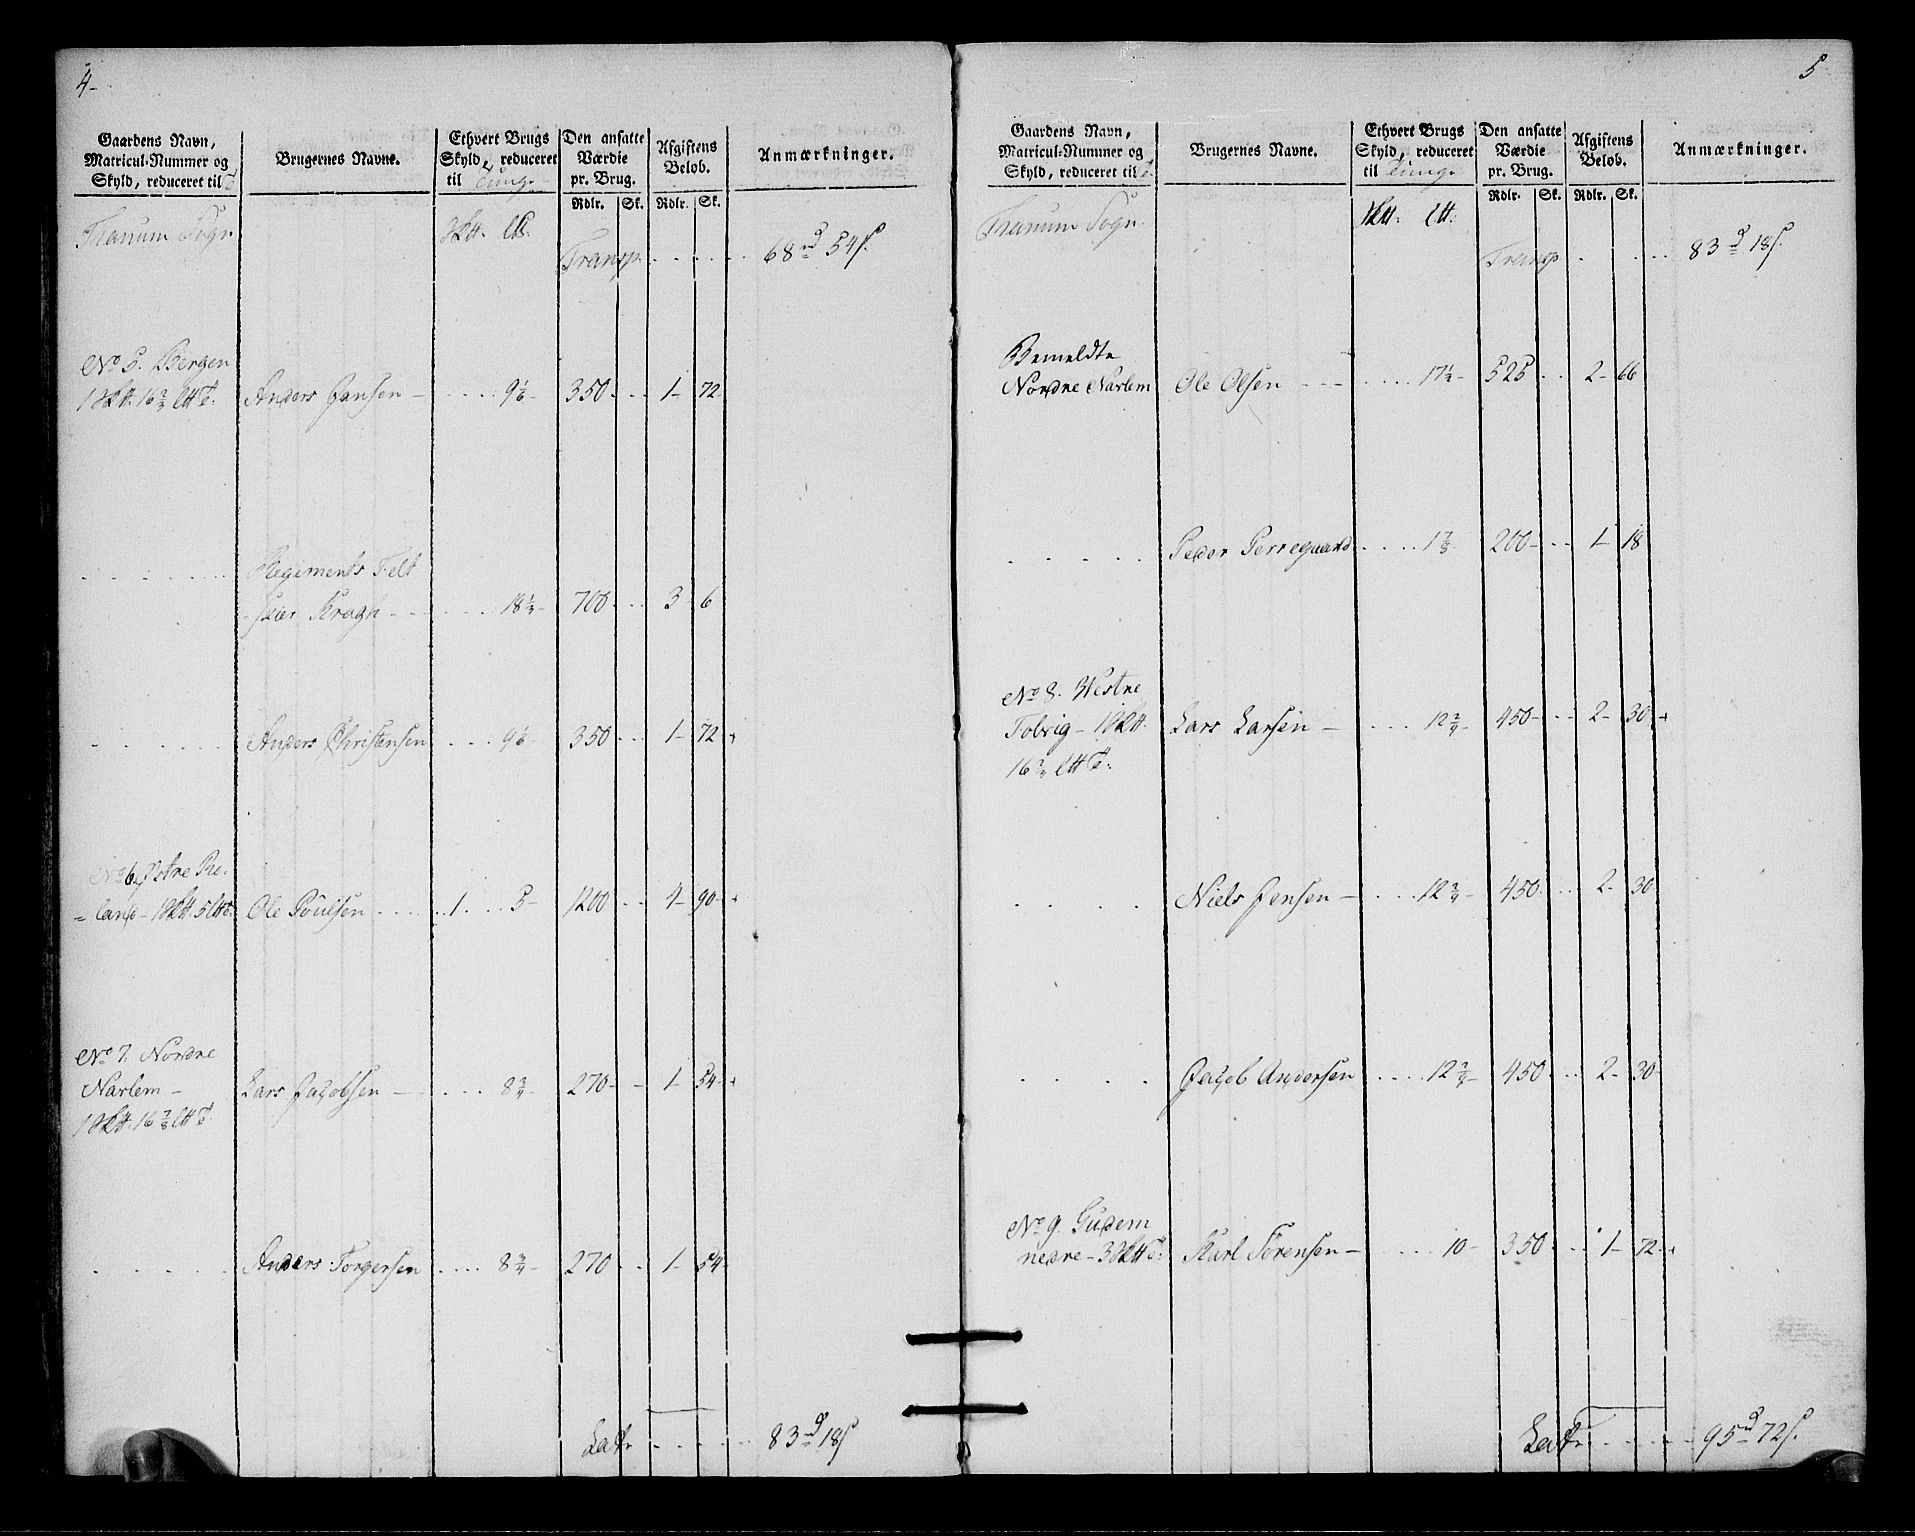 4-
Gaardens Navn,
Matricul-Nummer og
Skyld, reduceret til
Brugernes Navne.
Ethvert Brugs
Skyld, reduceret
til Tunge
Den ansatte
Værdie
pr. Brug.
Rdlr. Sk.
Afgiftens
Beløb.
Rdlr. Sk.
Anmærkninger.
Tranum Sogn
Transp. . . . . . 68 rd 54 s.
No 5. Bergen
1 16 2/3 Anders Jansen - . . . . 9 1/6 - 350 . . . 1- 72
. . . . . . Regiments Felt
- skiær Kragh - . . . . . 18 1/4 - 700 . . . 3 6
. . . . . Anders Christensen . . . 9 1/6 - 350 . . . 1- 72 +
No 6. Østre Re-
= land - 1 5 Ole Poulsen . . . . . . 1 . . . 5- 1200 . . 4- 90 - +
No 7. Nordne
Narlem - Lars Jacobsen - . . . . 8 3/4 - 270 - - 1- 54 - +
1 16 7/8
. . . . . Anders Torgersen . . . . 8 3/4 - 270 . . 1- 54 -
Latr . . . . . 83 rd 18 s
5
Gaardens Navn,
Matricul-Nummer og
Skyld, reduceret til
Brugernes Navne.
Ethvert Brugs
Skyld, reduceret
til Tunge
Den ansatte
Værdie
pr. Brug.
Rdlr. Sk.
Afgiftens
Beløb.
Rdlr. Sk.
Anmærkninger.
Tranum Sogn
Transp . . . . . 83 rd 18 s.
Bemeldte
Nordre Narlem Ole Olsen - - - . . . . 17 1/2 - 525 . . 2- 66
. . . . . Peder Perregaard . . . . 17/8 - 200 - . . 1- 18
No 8. Westre
Tobrig - 1 Lars Larsen - . . . . 12 2/4 - 450 - . . 2- 30 - +
16 3/4
. . . . Niels Jensen - . . . . 12 3/4 - 450 . . . 2- 30
. . . . Jacob Andersen . . . . 12 3/4 - 450 . . . 2- 30
No 9. Gudem
nedre - 3 Karl Sørensen - . . . . . 10 - 350 . . . 1- 72 - +
Latr . . . . . . 95 rd 72 s.